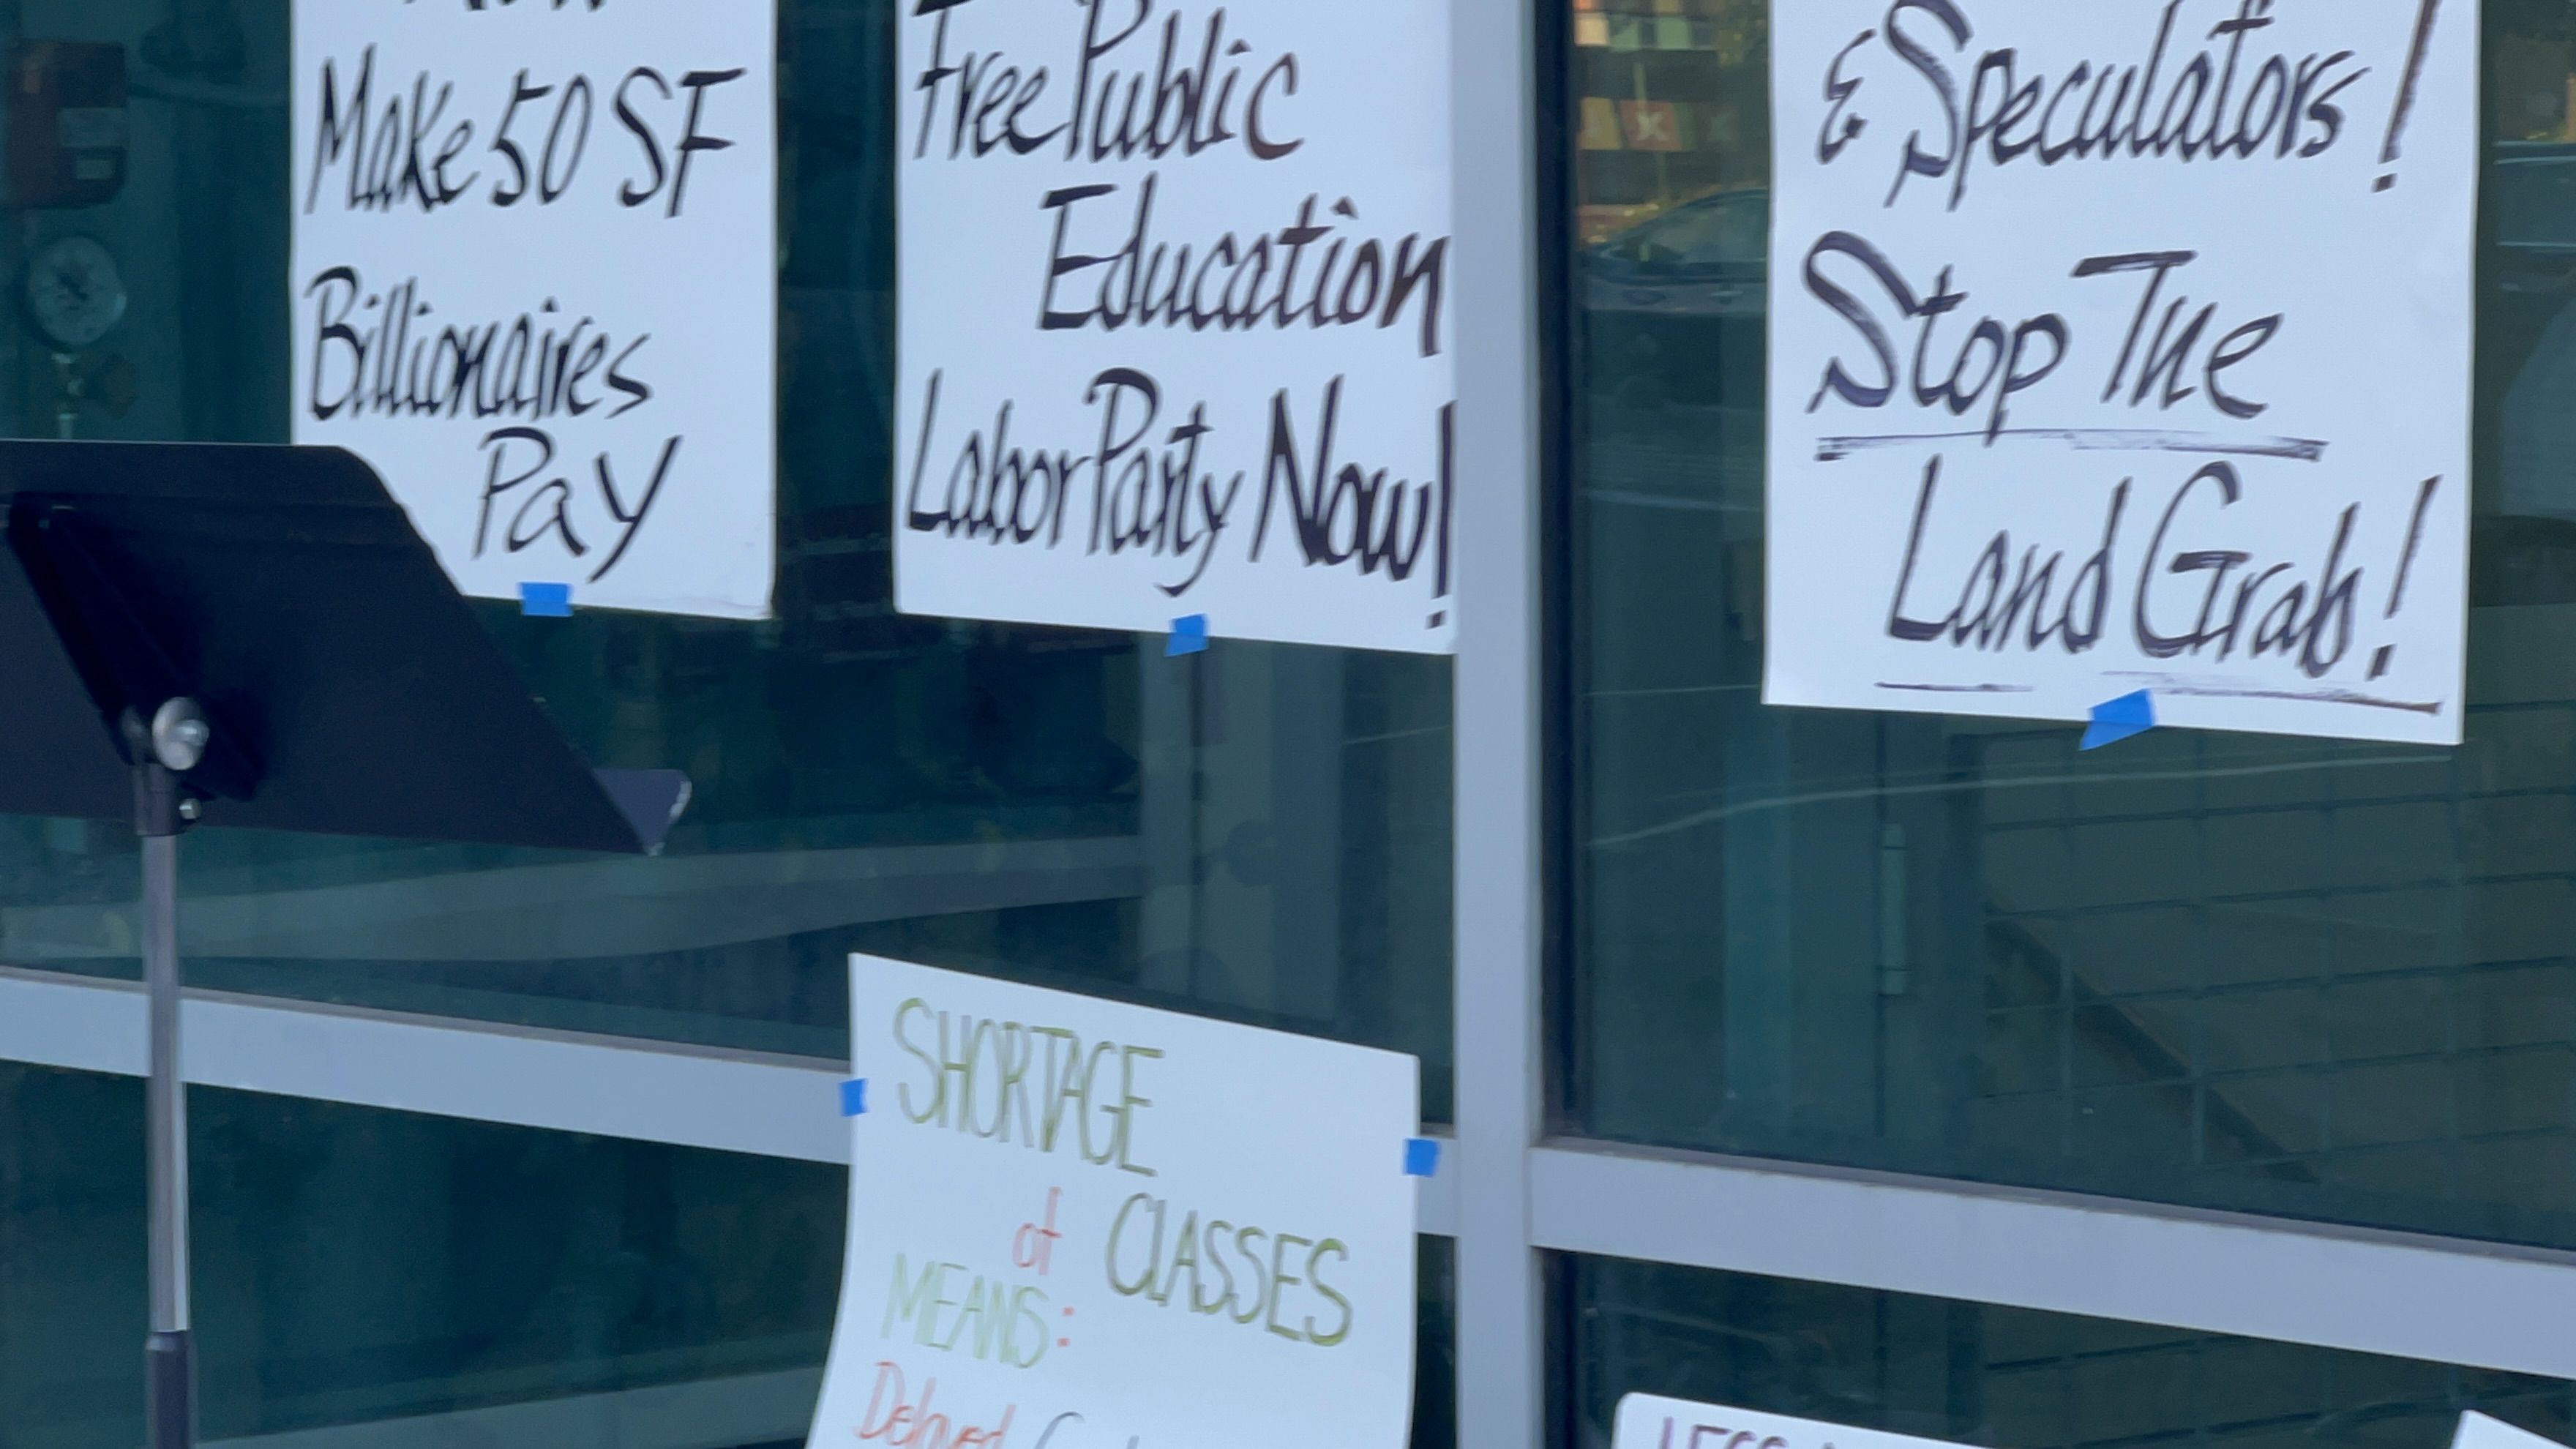 Make 50 SF
Billionaires
Pay
Free Public
Education
Labor Party Now!
& Speculators!
Stop The
Land Grab!
SHORTAGE
of CLASSES
MEANS:
Delayed